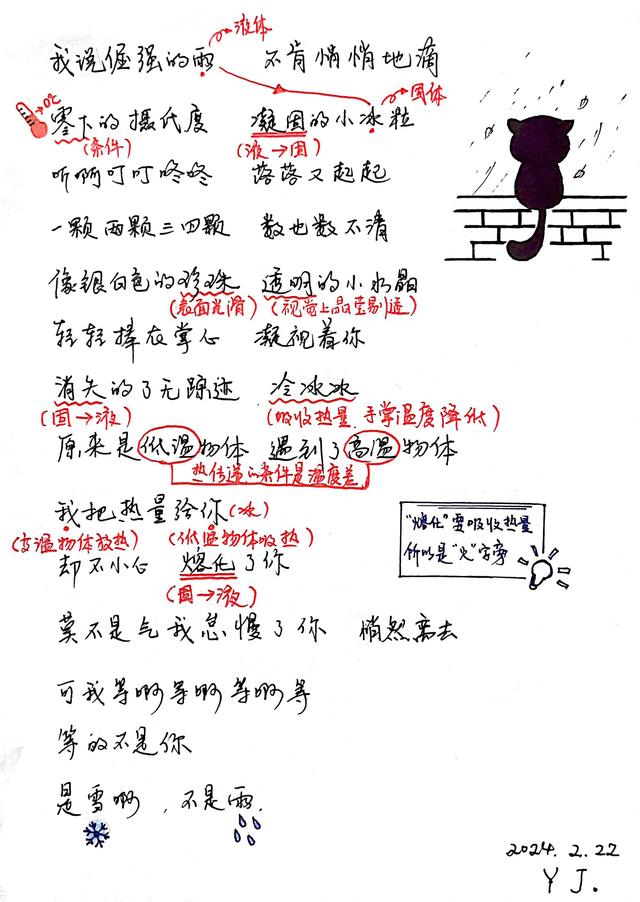 液体
我说倔强的雨 不肯悄悄地滴
0℃ 固体
零下的摄氏度 凝固的小冰粒
(条件) (液→固)
听啊叮叮咚咚 落落又起起
一颗两颗三四颗 数也数不清
像银白色的珍珠 透明的小水晶
(表面光滑) (视觉上晶莹剔透)
轻轻捧在掌心 凝视着你
消失的了无踪迹 冷冰冰
(固→液) (吸收热量,手掌温度降低)
原来是低温物体 遇到了高温物体
热传递的条件是温度差
我把热量给你(冰)
(高温物体放热) (低温物体吸热)
却不小心 熔化了你
(固→液)
"熔化"要吸收热量
所以是"火"字旁
莫不是气我怠慢了你 悄然离去
可我等啊等啊等啊等
等的不是你
是雪啊,不是雨.
2024.2.22
Y J.